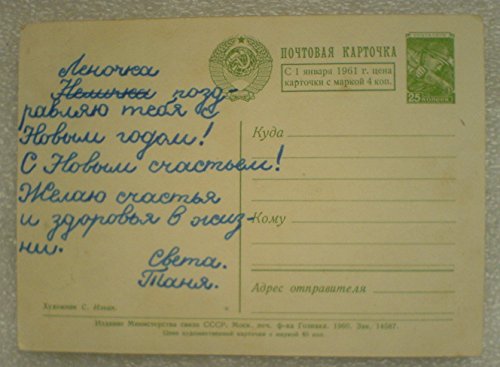 Леночка
Немичка позд-
равляю тебя с
Новым годом!
С Новым счастьем!
Желаю счастья
и здоровья в жиз-
ни.
Света.
Таня.
Художник С.
ПОЧТОВАЯ КАРТОЧКА
С 1 января 1961 г. цена
карточки с маркой 4 коп.
25 КОПЕЕК
Куда
Кому
Адрес отправителя
Издание Министерства связи СССР. Моск. печ. ф-ка Гознака. 1960. Зак. 14587.
Цена художественной карточки с маркой 40 коп.